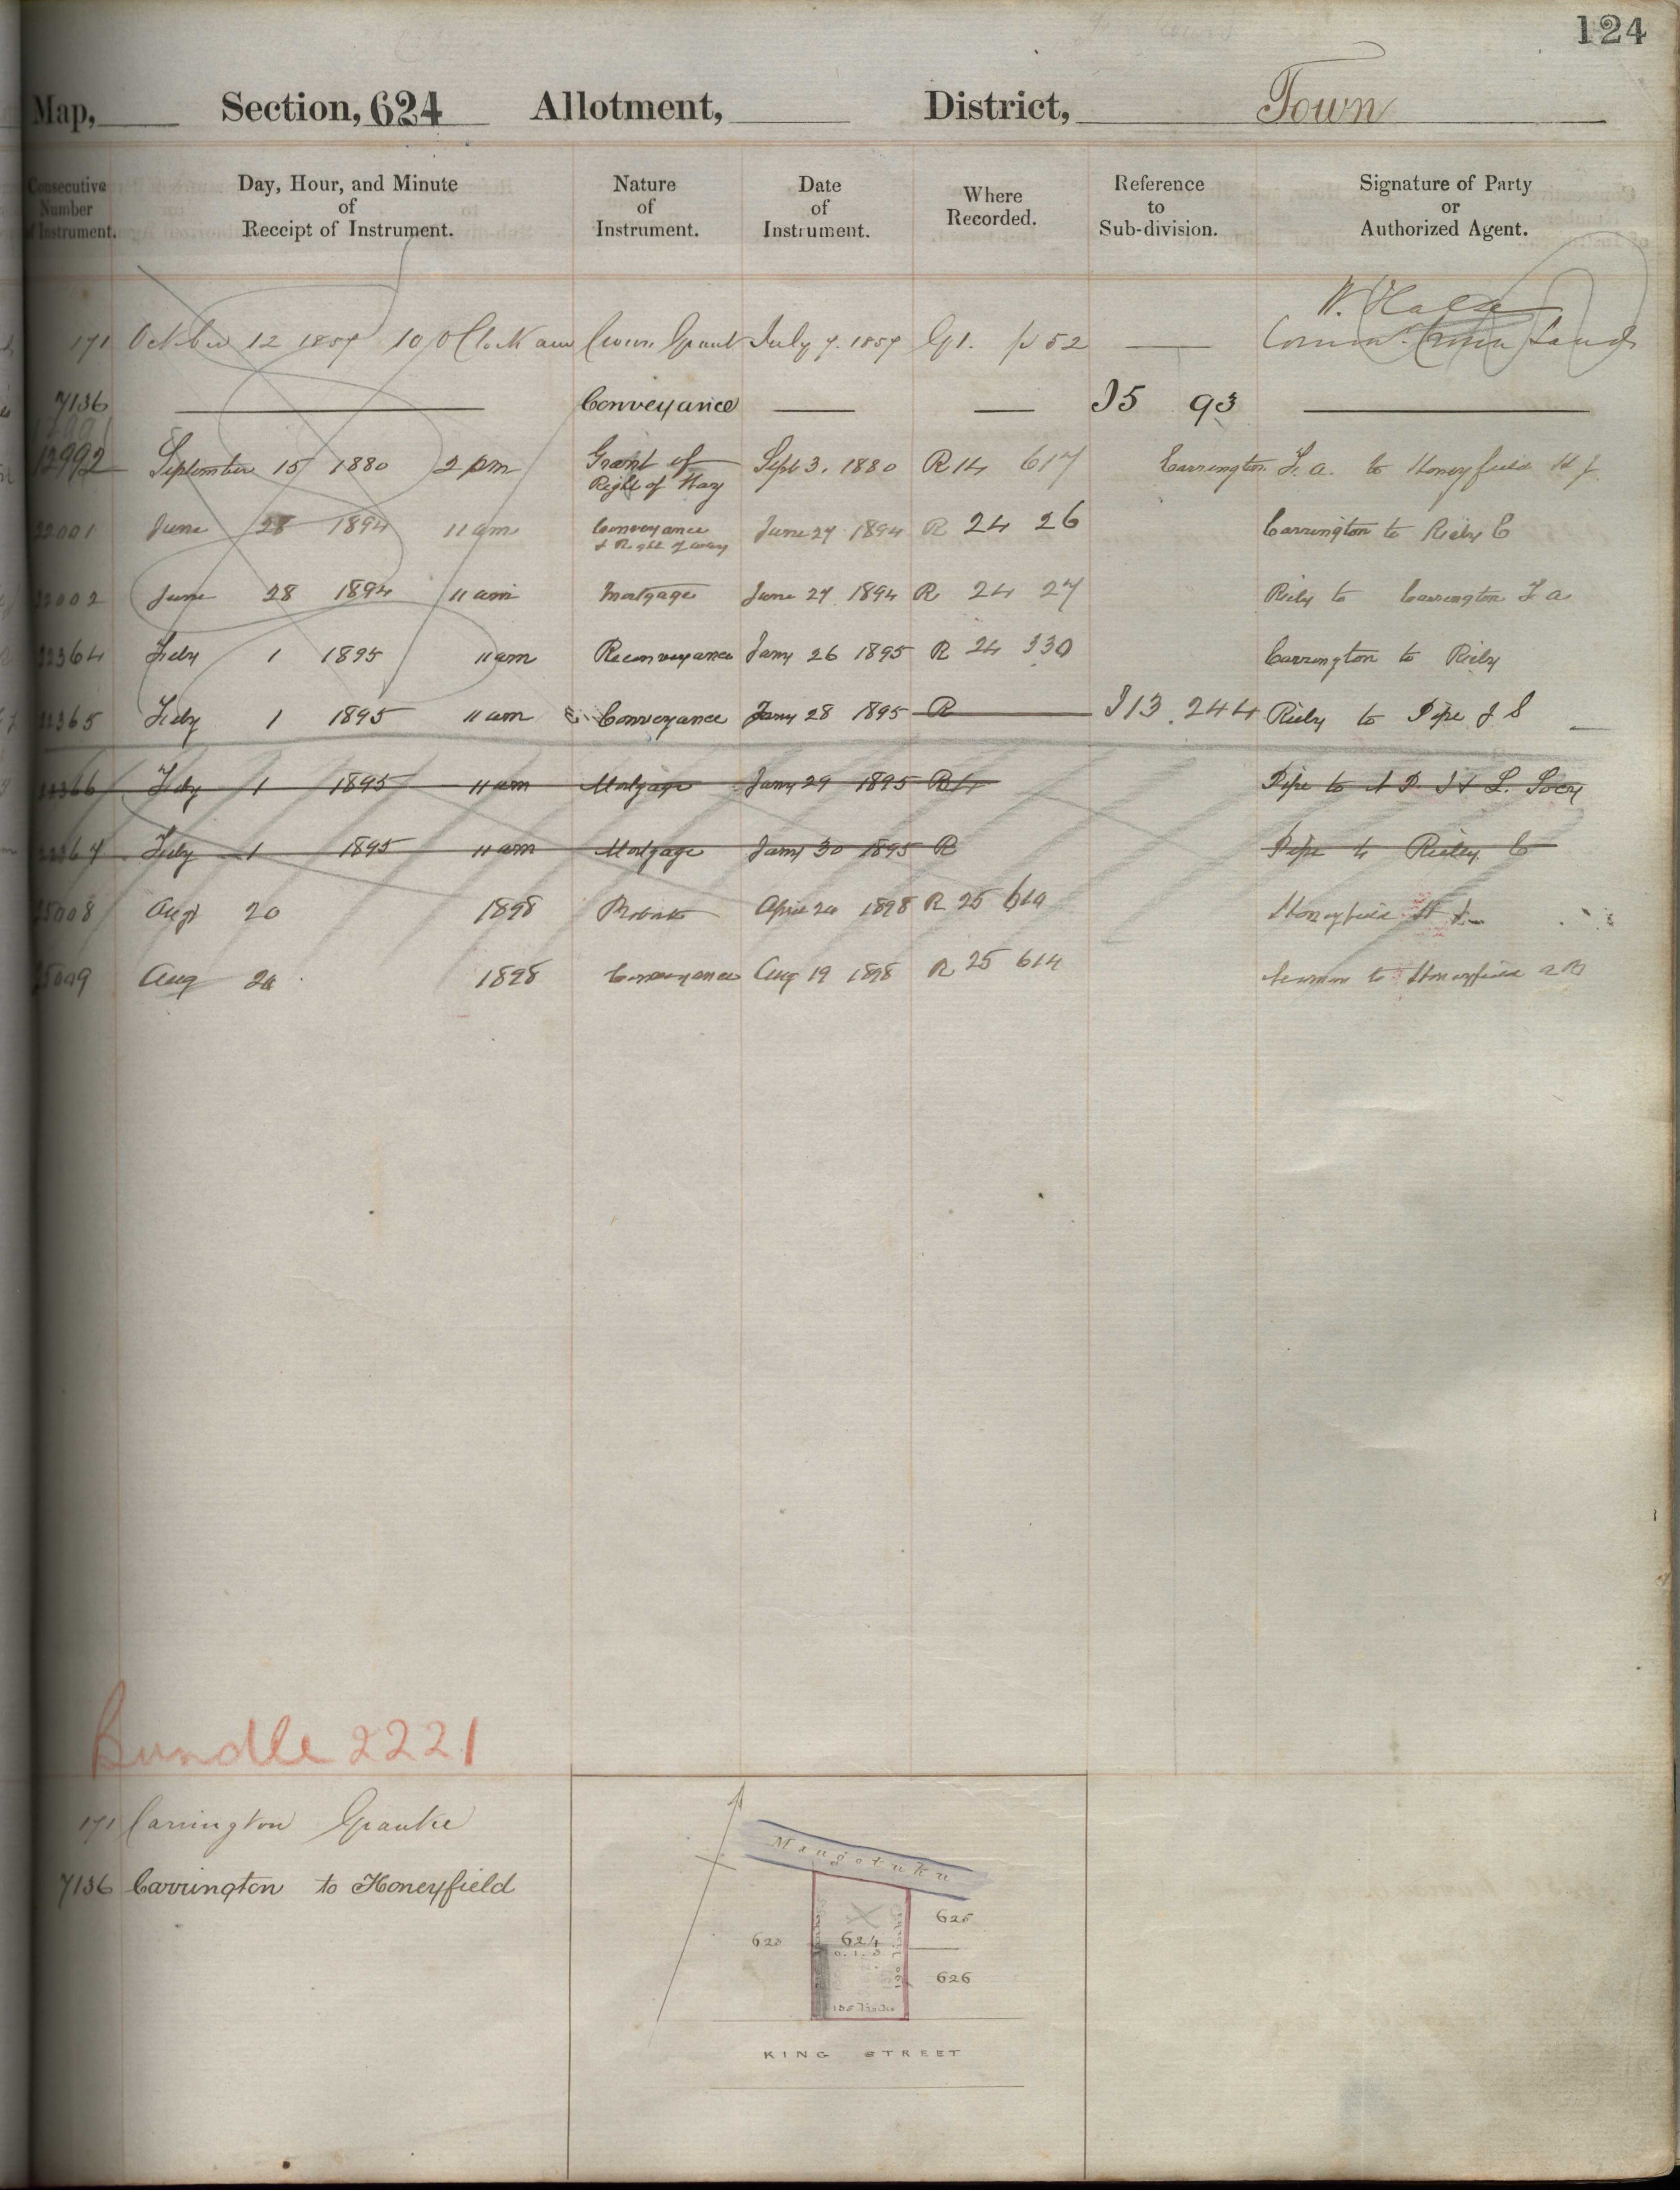 124
Map, Section, 624 Allotment, District, Town
Consecutive Number of Instrument. Day, Hour, and Minute of Receipt of Instrument. Nature of Instrument. Date of Instrument. Where Recorded. Reference to Sub-division. Signature of Party or Authorized Agent.
W. Halse
171 October 12 1857 10 O'Clock am Crown Grant July 7. 1857 G1. p 52 Commr. Crown Lands
7136 Conveyance I5 93
12992 September 15 1880 2 pm Grant of Right of Way Sept 3. 1880 R14 617 Carrington F. A. to Honeyfield H J.
22001 June 28 1894 11 am Conveyance & Right of way June 27 1894 R 24 26 Carrington to Rieby C
22002 June 28 1894 11 am Mortgage June 27 1894 R 24 27 Rieby to Carrington F A
22364 Feby 1 1895 11 am Reconveyance Jany 26 1895 R 24 330 Carrington to Rieby
22365 Feby 1 1895 11 am Conveyance Jany 28 1895 R I13. 244 Rieby to Pipe J S
22366 Feby 1 1895 11 am Mortgage Jany 29 1895 R Pipe to
22367 Feby 1 1895 11 am Mortgage Jany 30 1895 R Pipe to C
25008 Augt 20 1898 Probate April 20 1898 R 25 Honeyfield H J.
25009 Aug 20 1898 Conveyance Aug 19 1898 R 25 614 to Honeyfield
Bundle 2221
171 Carrington Grantee
7136 Carrington to Honeyfield
Mangotuku
625
623 624
0. 1. 0
626
KING STREET